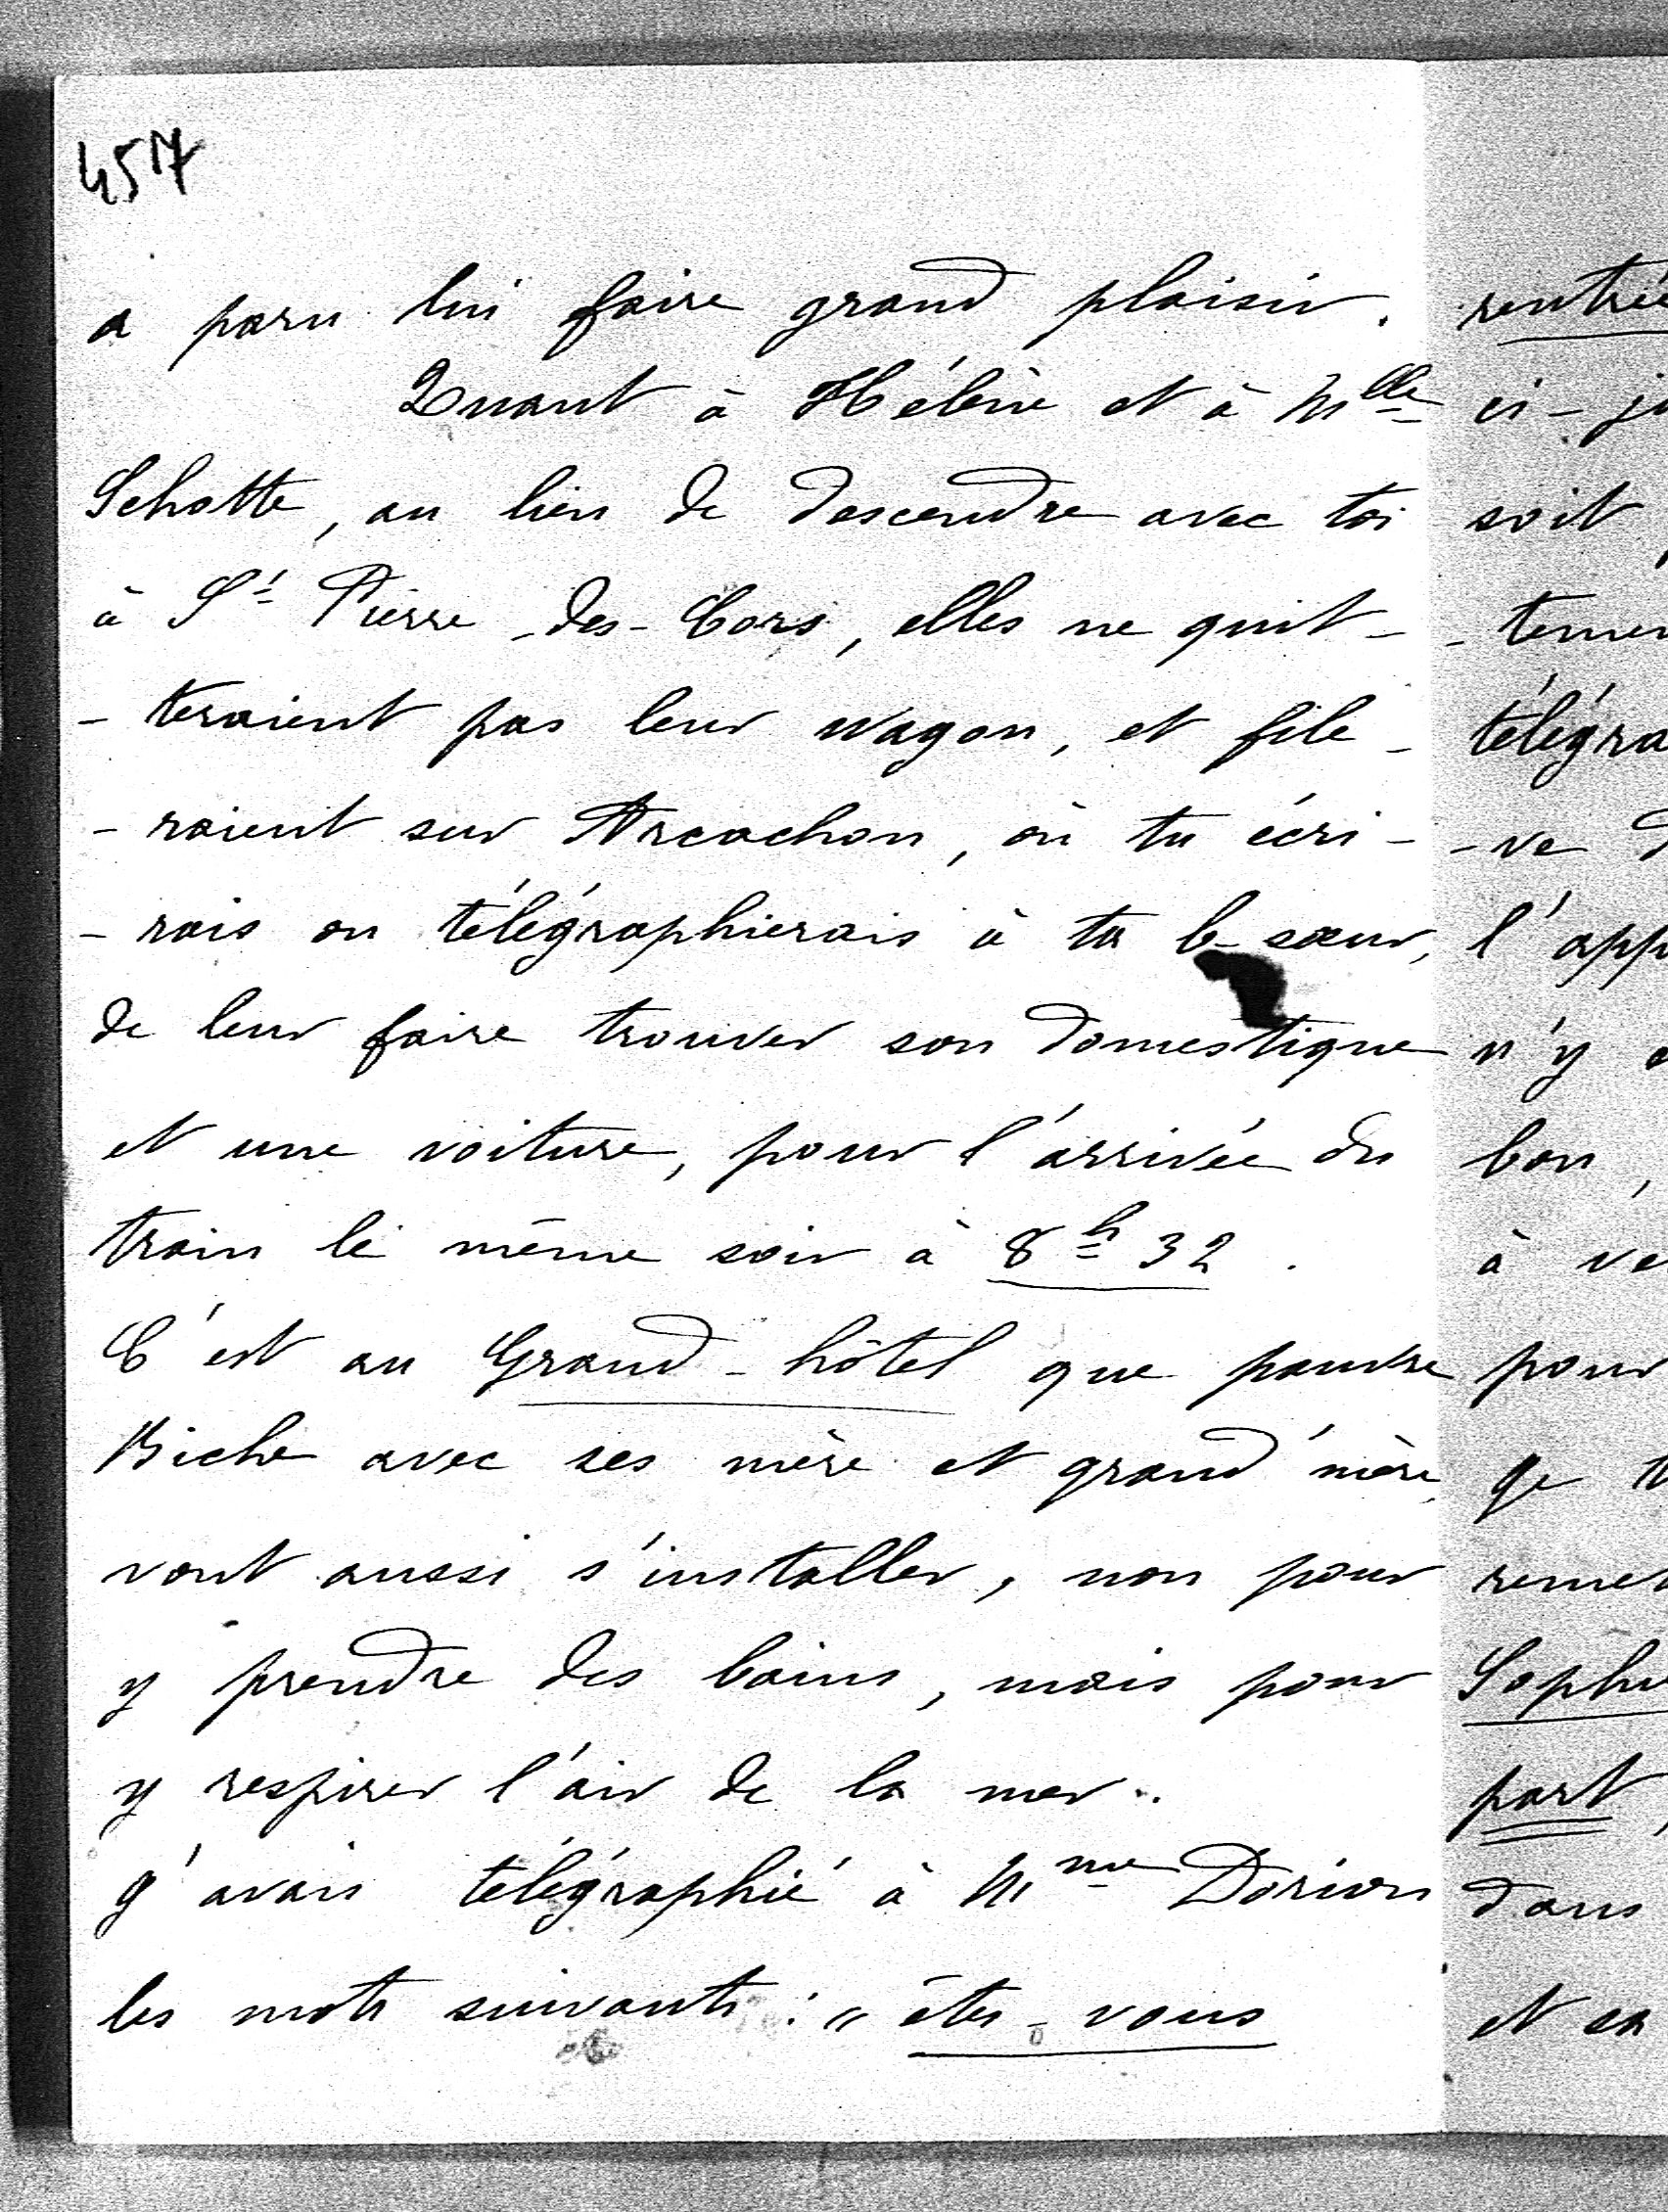 4517
a paru lui faire grand plaisir.
Quant à Hélène et à Mlle
Schotte, au lieu de descendre avec toi
à St Pierre-des-Cors, elles ne quit-
-teraient pas leur wagon, et file-
-raient sur Arcachon, où tu écri-
-rais ou télégraphierais à ta b-sœur,
de leur faire trouver son domestique
et une voiture, pour l'arrivée du
train le même soir à 8h 32.
C'est au Grand-hôtel que pauvre
Biche avec ses mère et grand'mère,
vont aussi s'installer, non pour
y prendre des bains, mais pour
y respirer l'air de la mer.
J'avais télégraphié à Mme Dorian
les mots suivants : " êtes-vous
rentrée
ci-jo
soit
-temen
télégra
-ve d
l'app
n'y a
bon,
à ve
pour
ge t
remet
Sophie
part,
dans
et sa